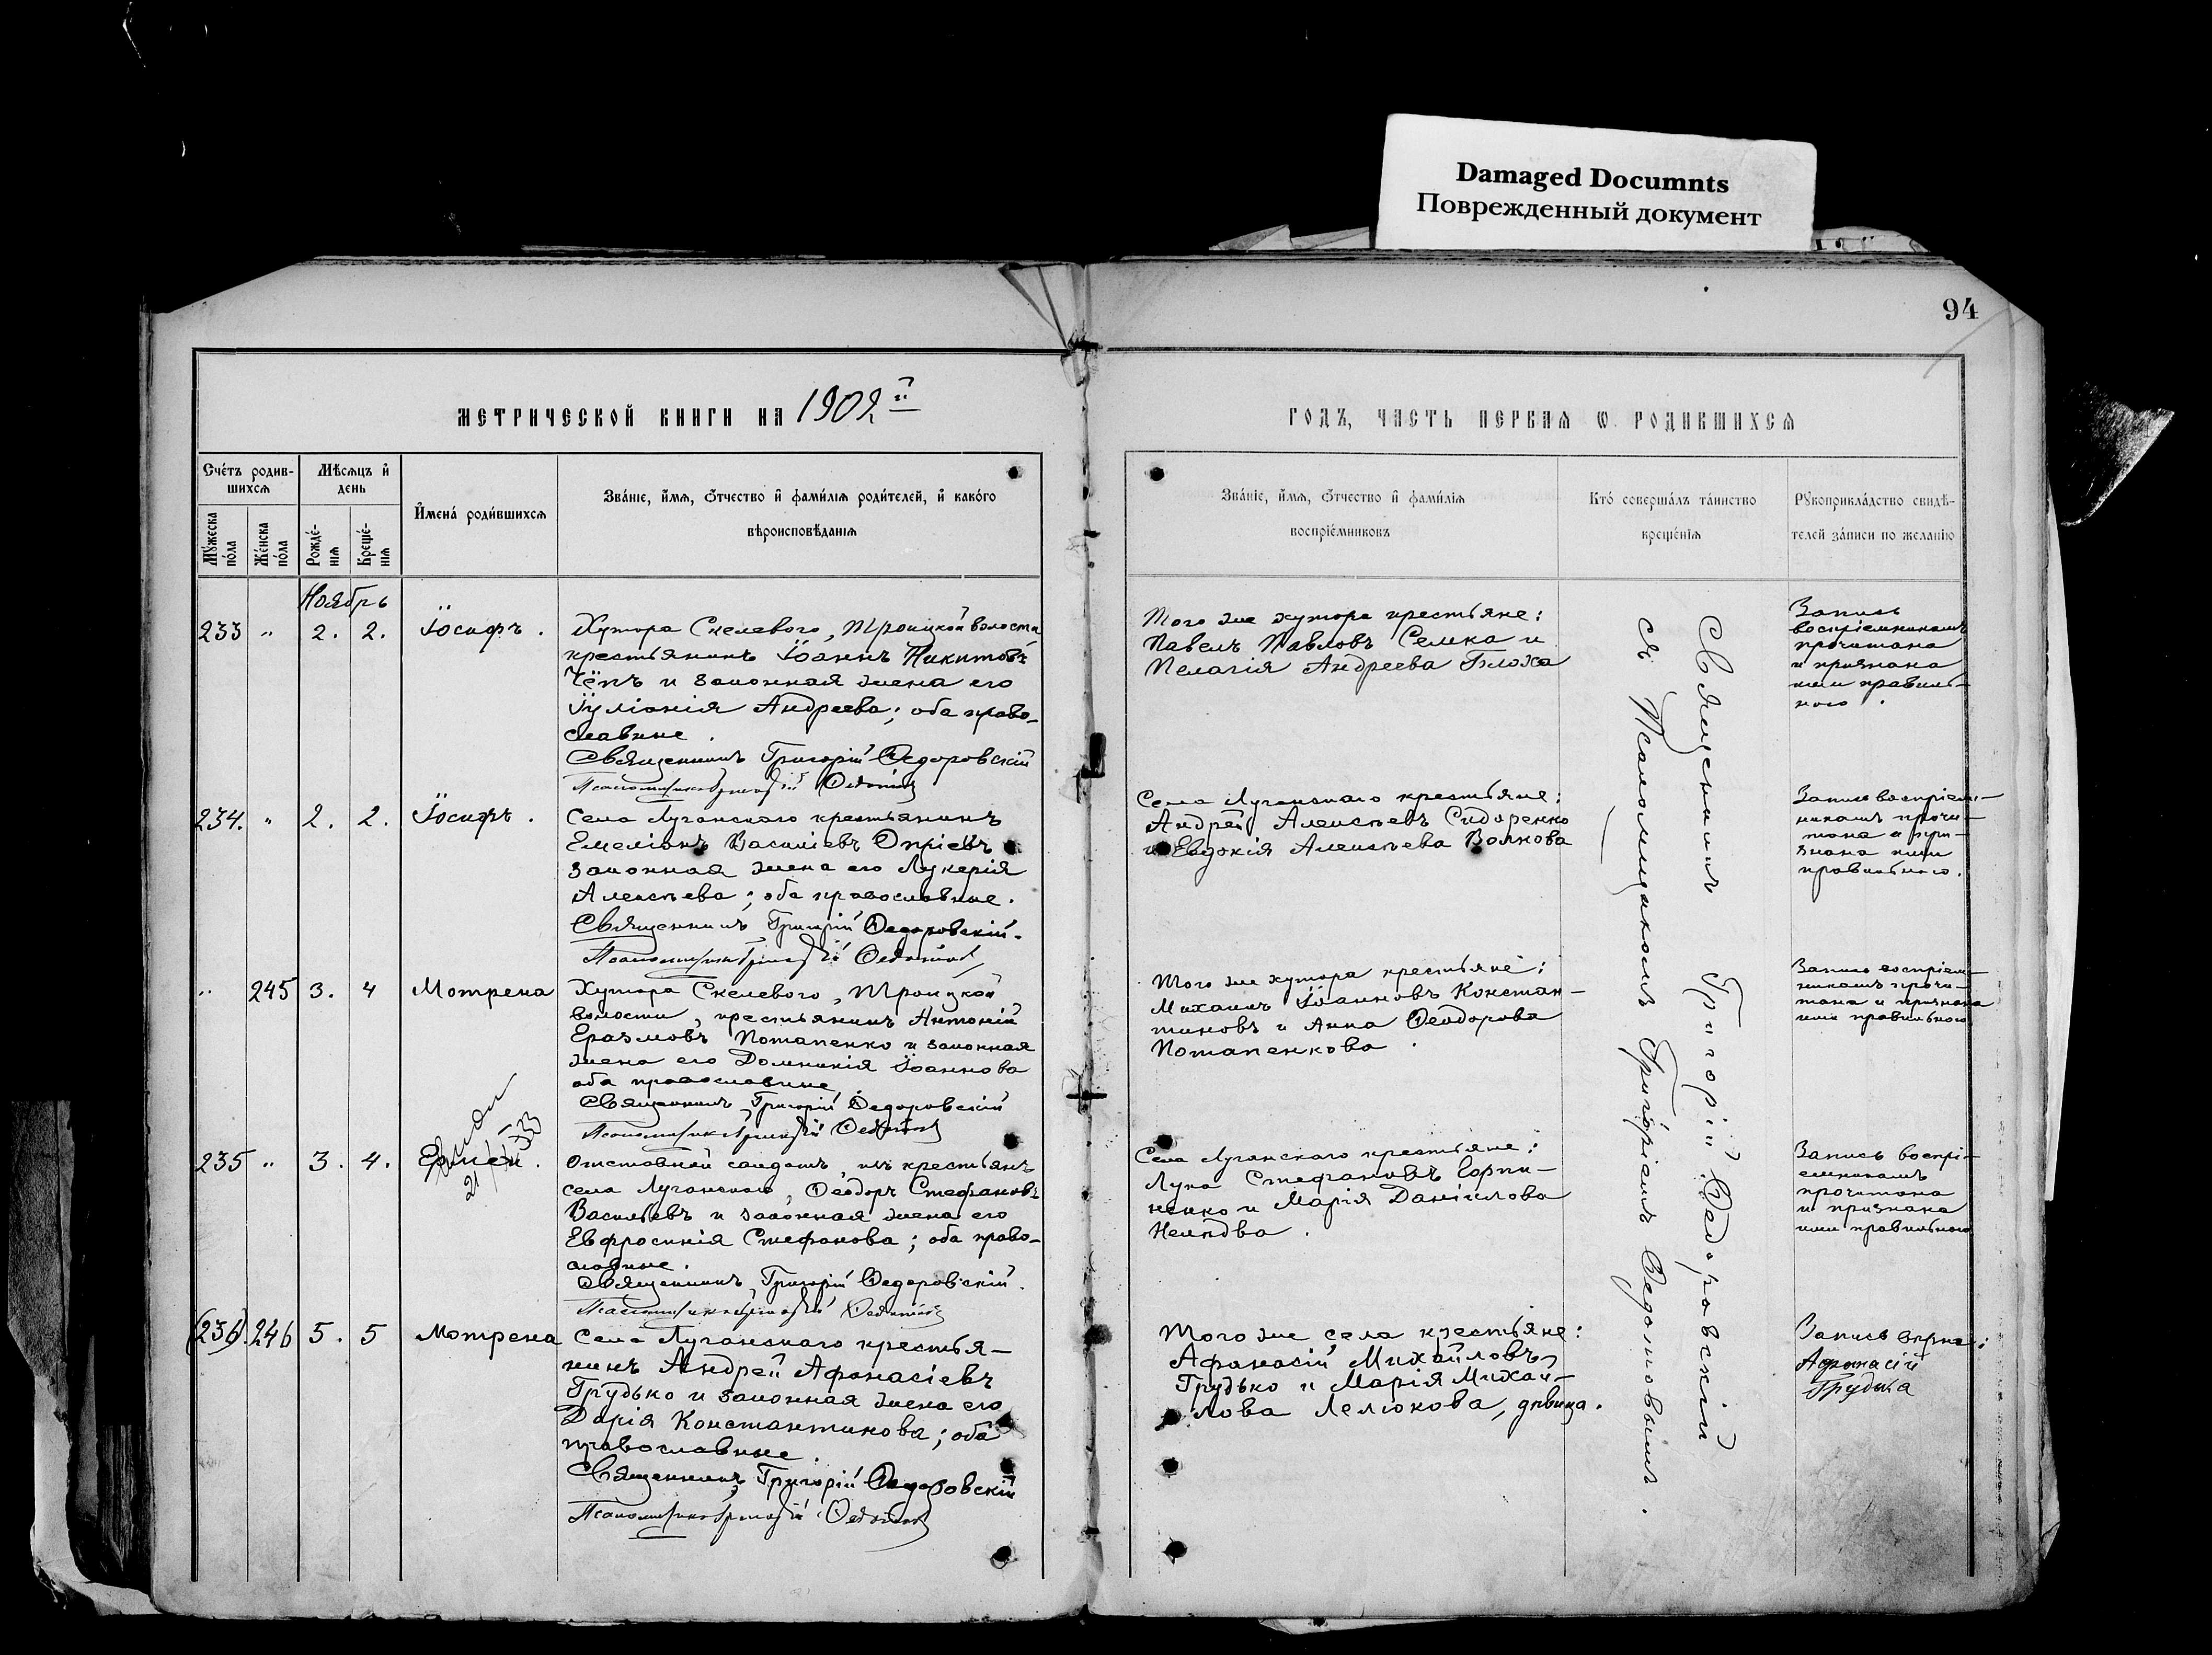 Damaged Documnts
Поврежденный документ
94
МЕТРИЧЕСКОЙ КНИГИ НА 1902й
ГОДЪ, ЧАСТЬ ПЕРВАЯ Ѡ РОДИВШИХСЯ
Сче́тъ родив-
шихсѧ
Мѣсѧцъ и҆
день
И҆мена́ роди́вшихсѧ
Зва́нїе, и҆́мѧ, ѻ҆́тчество и҆ фами́лїѧ роди́телей, и҆ како́го
вѣроисповѣ́данїѧ
Мꙋ́жеска
по́ла
Же́нска
по́ла
Рожде́-
нїѧ
Креще́-
нїѧ
Зва́нїе, и҆́мѧ, ѻ҆́тчество и҆ фами́лїѧ
воспрїе́мниковъ
Кто̀ соверша́лъ та́инство
креще́нїѧ
Рꙋкоприкла́дство свидѣ́-
телей за́писи по жела́нїю
Ноябрь
233 " 2. 2. Іосифъ.
Хутора Скелевого, Троицкой волости
крестьянинъ Іоаннъ Никитовъ
Чёпъ и законная жена его
Іуліанія Андреева; оба право-
славные.
Священникъ Григорій Ѳедоровскій
Псаломщикъ Григорій
Того же хутора крестьяне:
Павелъ Павловъ Семка и
Пелагія Андреева Блоха
Запись
воспріемникамъ
прочитана
и признана
ими правиль-
ною.
234. " 2. 2. Іосифъ.
Села Луганскаго крестьянинъ
Емеліанъ Василіевъ
законная жена его Лукерія
Алексѣева; оба православные.
Священникъ Григорій Ѳедоровскій.
Псаломщикъ Григорій
Села Луганскаго крестьяне:
Андрей Алексѣевъ Сидоренко
и Евдокія Алексѣева Волкова
Запись воспріем-
никамъ прочи-
тана и при-
знана ими
правильною.
" 245 3. 4 Мотрена
Хутора Скелевого, Троицкой
волости, крестьянинъ Антоній
Еразмовъ Потапенко и законная
жена его Домникія Іоаннова
оба православные
Священникъ Григорій Ѳедоровскій
Псаломщикъ Григорій
Того же хутора крестьяне:
Михаилъ Іоанновъ Констан-
тиновъ и Анна Ѳеодорова
Потапенкова.
Запись воспріем-
никамъ прочи-
тана и признана
ими правильною
235 " 3. 4.
Отставной солдатъ, изъ крестьянъ
села Луганскаго, Ѳеодоръ Стефановъ
Васильевъ и законная жена его
Евфросинія Стефанова; оба право-
славные.
Священникъ Григорій Ѳедоровскій.
Псаломщикъ Григорій
Села Луганскаго крестьяне:
Лука Стефановъ Горпи-
ненко и Марія Даніилова
Запись воспрі-
емникамъ
прочитана
и признана
ими правильною
(236). 246 5. 5 Мотрена
Села Луганскаго крестья-
нинъ Андрей Афанасіевъ
Грудько и законная жена его
Дарія Константинова; оба
православные.
Священникъ Григорій Ѳедоровскій
Псаломщикъ Григорій
Того же села крестьяне:
Афанасій Михайловъ
Грудько и Марія Михаи-
лова Лелюкова, дѣвица.
Запись вѣрна:
Афанасій
Грудька
Священникъ Григорій Ѳедоровскій
съ Псаломщикомъ Григоріемъ